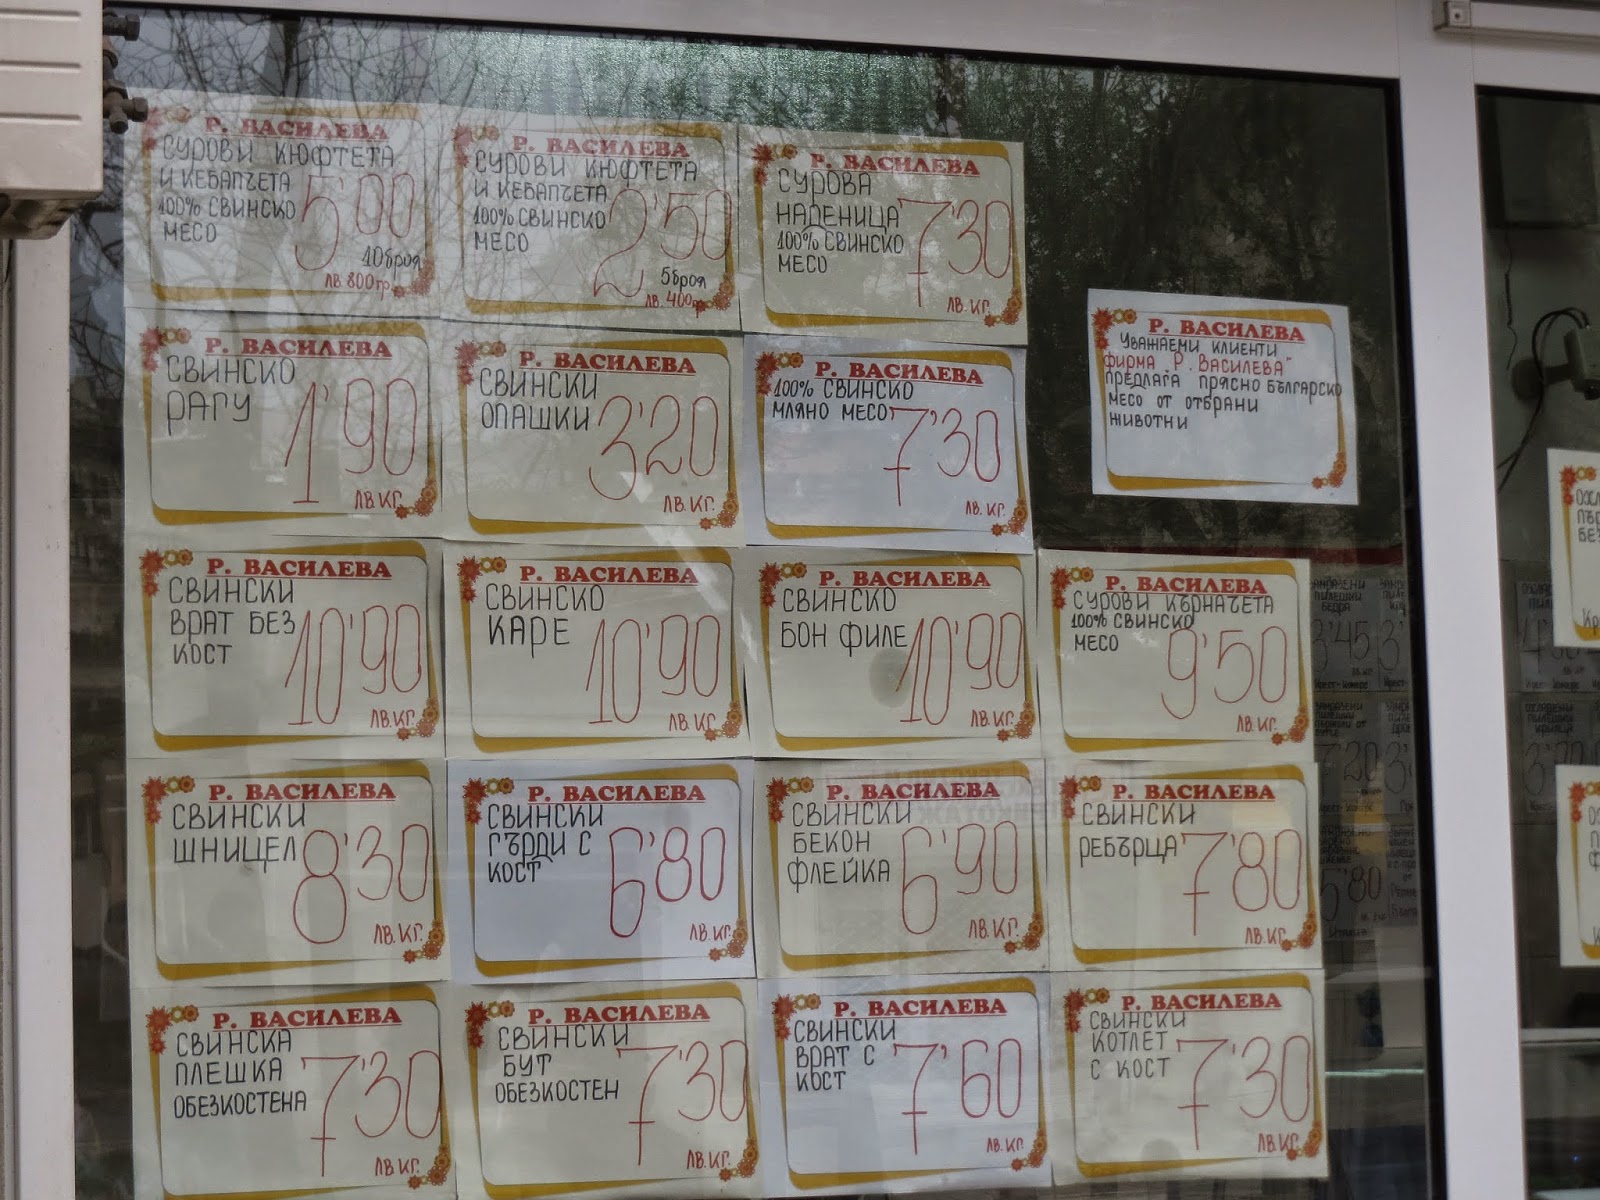 Р. ВАСИЛЕВА
СУРОВИ КЮФТЕТА
И КЕБАПЧЕТА
100% СВИНСКО
МЕСО
5'00
10броя
ЛВ. 800гр.
Р. ВАСИЛЕВА
СУРОВИ КЮФТЕТА
И КЕБАПЧЕТА
100% СВИНСКО
МЕСО
2'50
5броя
ЛВ. 400гр.
Р. ВАСИЛЕВА
СУРОВА
НАДЕНИЦА
100% СВИНСКО
МЕСО
7'30
ЛВ. КГ.
Р. ВАСИЛЕВА
УВАЖАЕМИ КЛИЕНТИ
ФИРМА „Р. ВАСИЛЕВА"
ПРЕДЛАГА ПРЯСНО БЪЛГАРСКО
МЕСО ОТ ОТБРАНИ
ЖИВОТНИ
Р. ВАСИЛЕВА
СВИНСКО
РАГУ
1'90
ЛВ. КГ.
Р. ВАСИЛЕВА
СВИНСКИ
ОПАШКИ
3'20
ЛВ. КГ.
Р. ВАСИЛЕВА
100% СВИНСКО
МЛЯНО МЕСО
7'30
ЛВ. КГ.
Р. ВАСИЛЕВА
СВИНСКИ
ВРАТ БЕЗ
КОСТ
10'90
ЛВ. КГ.
Р. ВАСИЛЕВА
СВИНСКО
КАРЕ
10'90
ЛВ. КГ.
Р. ВАСИЛЕВА
СВИНСКО
БОН ФИЛЕ
10'90
ЛВ. КГ.
Р. ВАСИЛЕВА
СУРОВИ КЪРНАЧЕТА
100% СВИНСКО
МЕСО
9'50
ЛВ. КГ.
Р. ВАСИЛЕВА
СВИНСКИ
ШНИЦЕЛ
8'30
ЛВ. КГ.
Р. ВАСИЛЕВА
СВИНСКИ
ГЪРДИ С
КОСТ
6'80
ЛВ. КГ.
Р. ВАСИЛЕВА
СВИНСКИ
БЕКОН
ФЛЕЙКА
6'90
ЛВ. КГ.
Р. ВАСИЛЕВА
СВИНСКИ
РЕБЪРЦА
7'80
ЛВ. КГ.
Р. ВАСИЛЕВА
СВИНСКА
ПЛЕШКА
ОБЕЗКОСТЕНА
7'30
ЛВ. КГ.
Р. ВАСИЛЕВА
СВИНСКИ
БУТ
ОБЕЗКОСТЕН
7'30
ЛВ. КГ.
Р. ВАСИЛЕВА
СВИНСКИ
ВРАТ С
КОСТ
7'60
ЛВ. КГ.
Р. ВАСИЛЕВА
СВИНСКИ
КОТЛЕТ
С КОСТ
7'30
ЛВ. КГ.